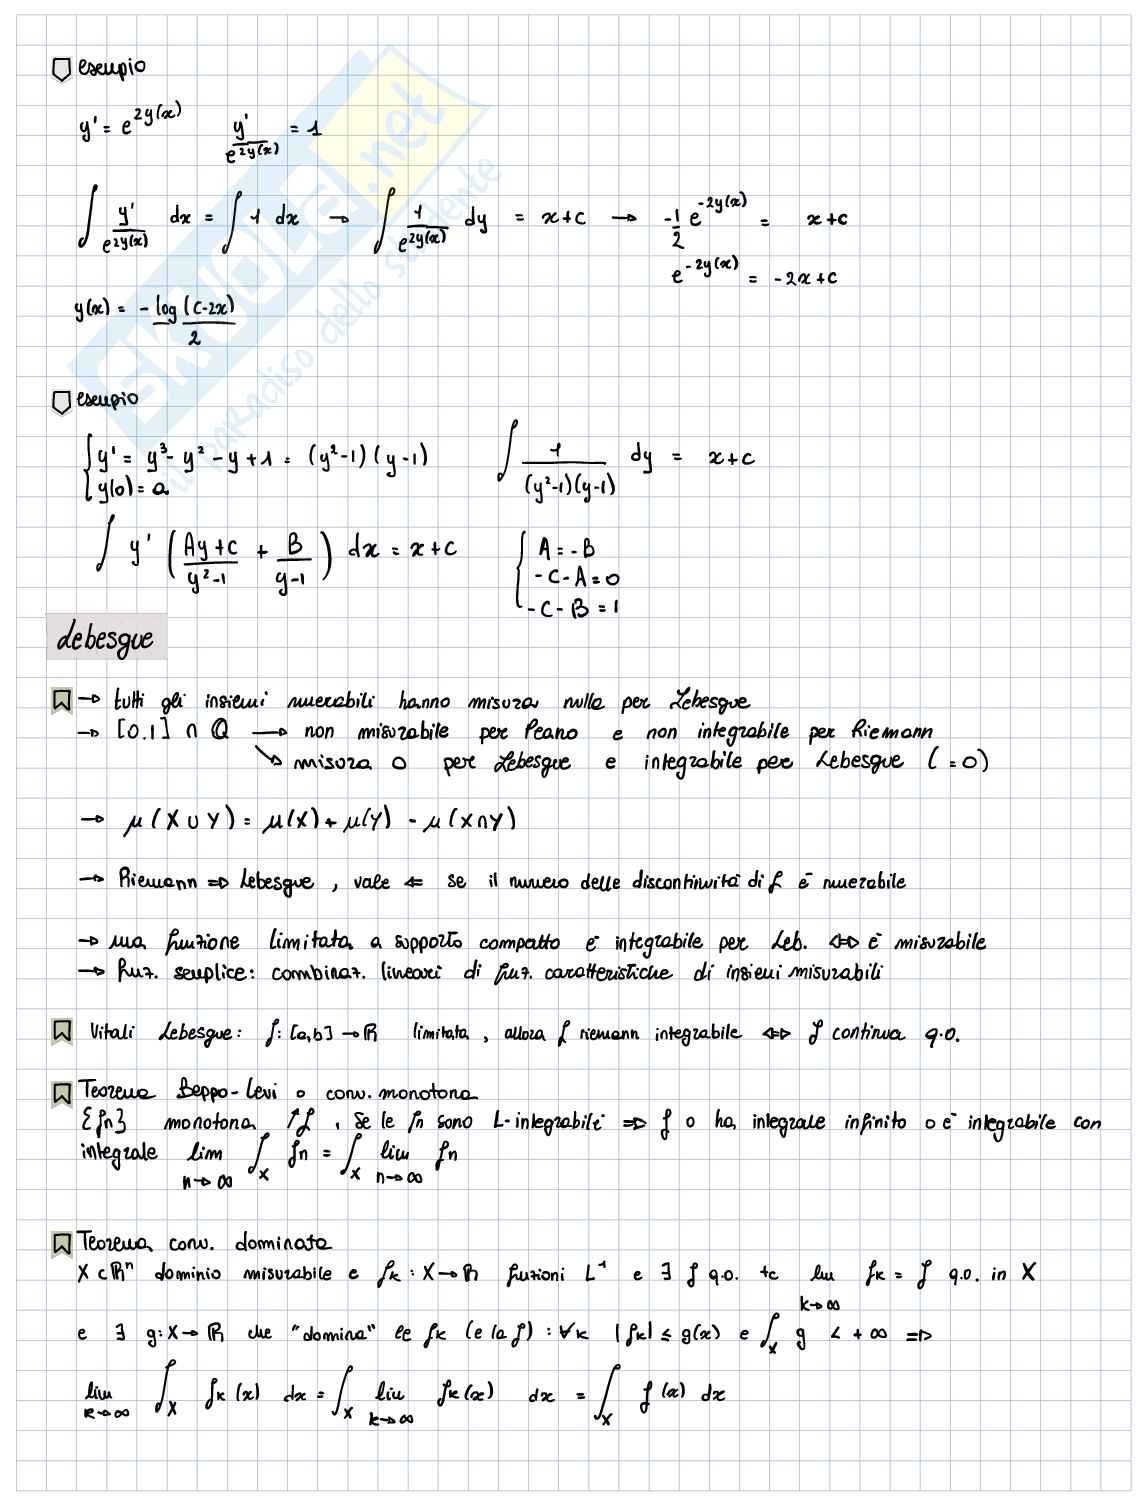 esempio
y' = e^{2y(x)}    y'/e^{2y(x)} = 1
∫ y'/e^{2y(x)} dx = ∫ 1 dx → ∫ 1/e^{2y(x)} dy = x+c → -1/2 e^{-2y(x)} = x+c
e^{-2y(x)} = -2x+c
y(x) = - log(c-2x)/2
esempio
{ y' = y³ - y² - y + 1 = (y²-1)(y-1)    ∫ 1/((y²-1)(y-1)) dy = x+c
y(0) = a
∫ y' ( (Ay+c)/(y²-1) + B/(y-1) ) dx = x+c    { A = -B
-C-A = 0
-C-B = 1
Lebesgue
→ tutti gli insiemi numerabili hanno misura nulla per Lebesgue
→ [0.1] ∩ Q → non misurabile per Peano e non integrabile per Riemann
↘ misura 0 per Lebesgue e integrabile per Lebesgue (=0)
→ μ(X∪Y) = μ(X) + μ(Y) - μ(X∩Y)
→ Riemann ⇒ Lebesgue, vale ⇐ se il numero delle discontinuità di f è numerabile
→ una funzione limitata a supporto compatto è integrabile per Leb. ⇔ è misurabile
→ funz. semplice: combinaz. lineari di funz. caratteristiche di insiemi misurabili
Vitali Lebesgue: f: [a,b] → ℝ limitata, allora f riemann integrabile ⇔ f continua q.o.
Teorema Beppo-Levi o conv. monotona
{fn} monotona ↑f, se le fn sono L-integrabili ⇒ f o ha integrale infinito o è integrabile con
integrale lim_{n→∞} ∫_X fn = ∫_X lim_{n→∞} fn
Teorema conv. dominata
X ⊂ ℝⁿ dominio misurabile e fk : X → ℝ funzioni L¹ e ∃ f q.o. tc lim_{k→∞} fk = f q.o. in X
e ∃ g: X → ℝ che "domina" le fk (e la f) : ∀k |fk| ≤ g(x) e ∫_X g < +∞ ⇒
lim_{k→∞} ∫_X fk(x) dx = ∫_X lim_{k→∞} fk(x) dx = ∫_X f(x) dx
SKUOLA.net
il paradiso dello studente